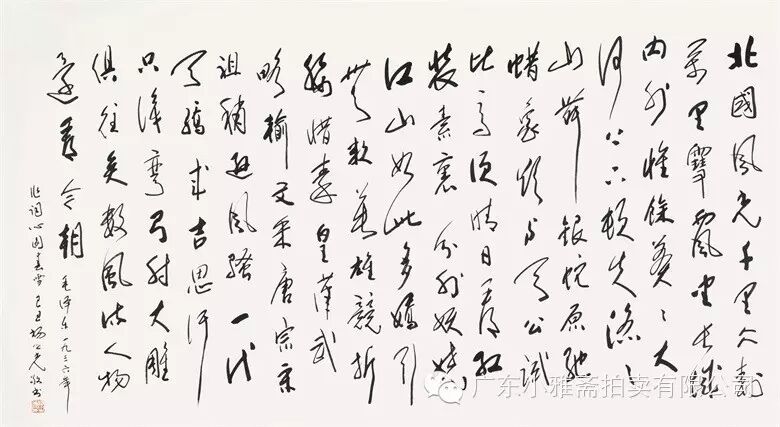 北國風光千里冰封
萬里雪飄望長城
内外惟餘莽々大
河上下頓失滔々
山舞銀蛇原馳
蜡象欲與天公試
比高須晴日看紅
裝素裹分外妖嬈
江山如此多嬌引
無數英雄競折
腰惜秦皇漢武
略輸文采唐宗宋
祖稍遜風騷一代
天驕成吉思汗
只識彎弓射大雕
俱往矣數風流人物
還看今朝
毛澤東一九三六年
作词沁園春雪 己丑楊之光敬書
广东小雅斋拍卖有限公司